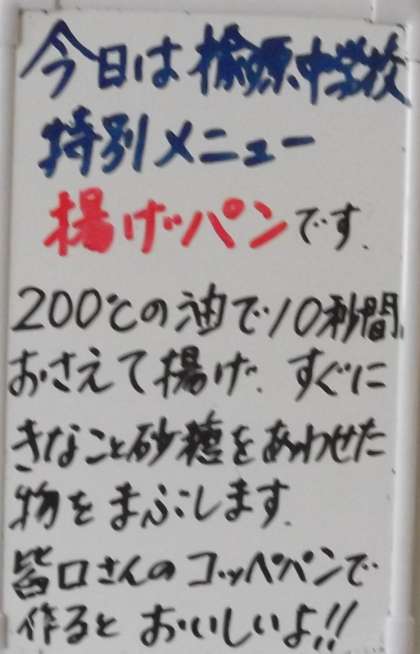 今日は榆原中学校
特別メニュー
揚げパンです.
200℃の油で10秒間、
おさえて揚げ、すぐに
きなこと砂糖をあわせた
物をまぶします.
皆口さんのコッペパンで
作るとおいしいよ!!